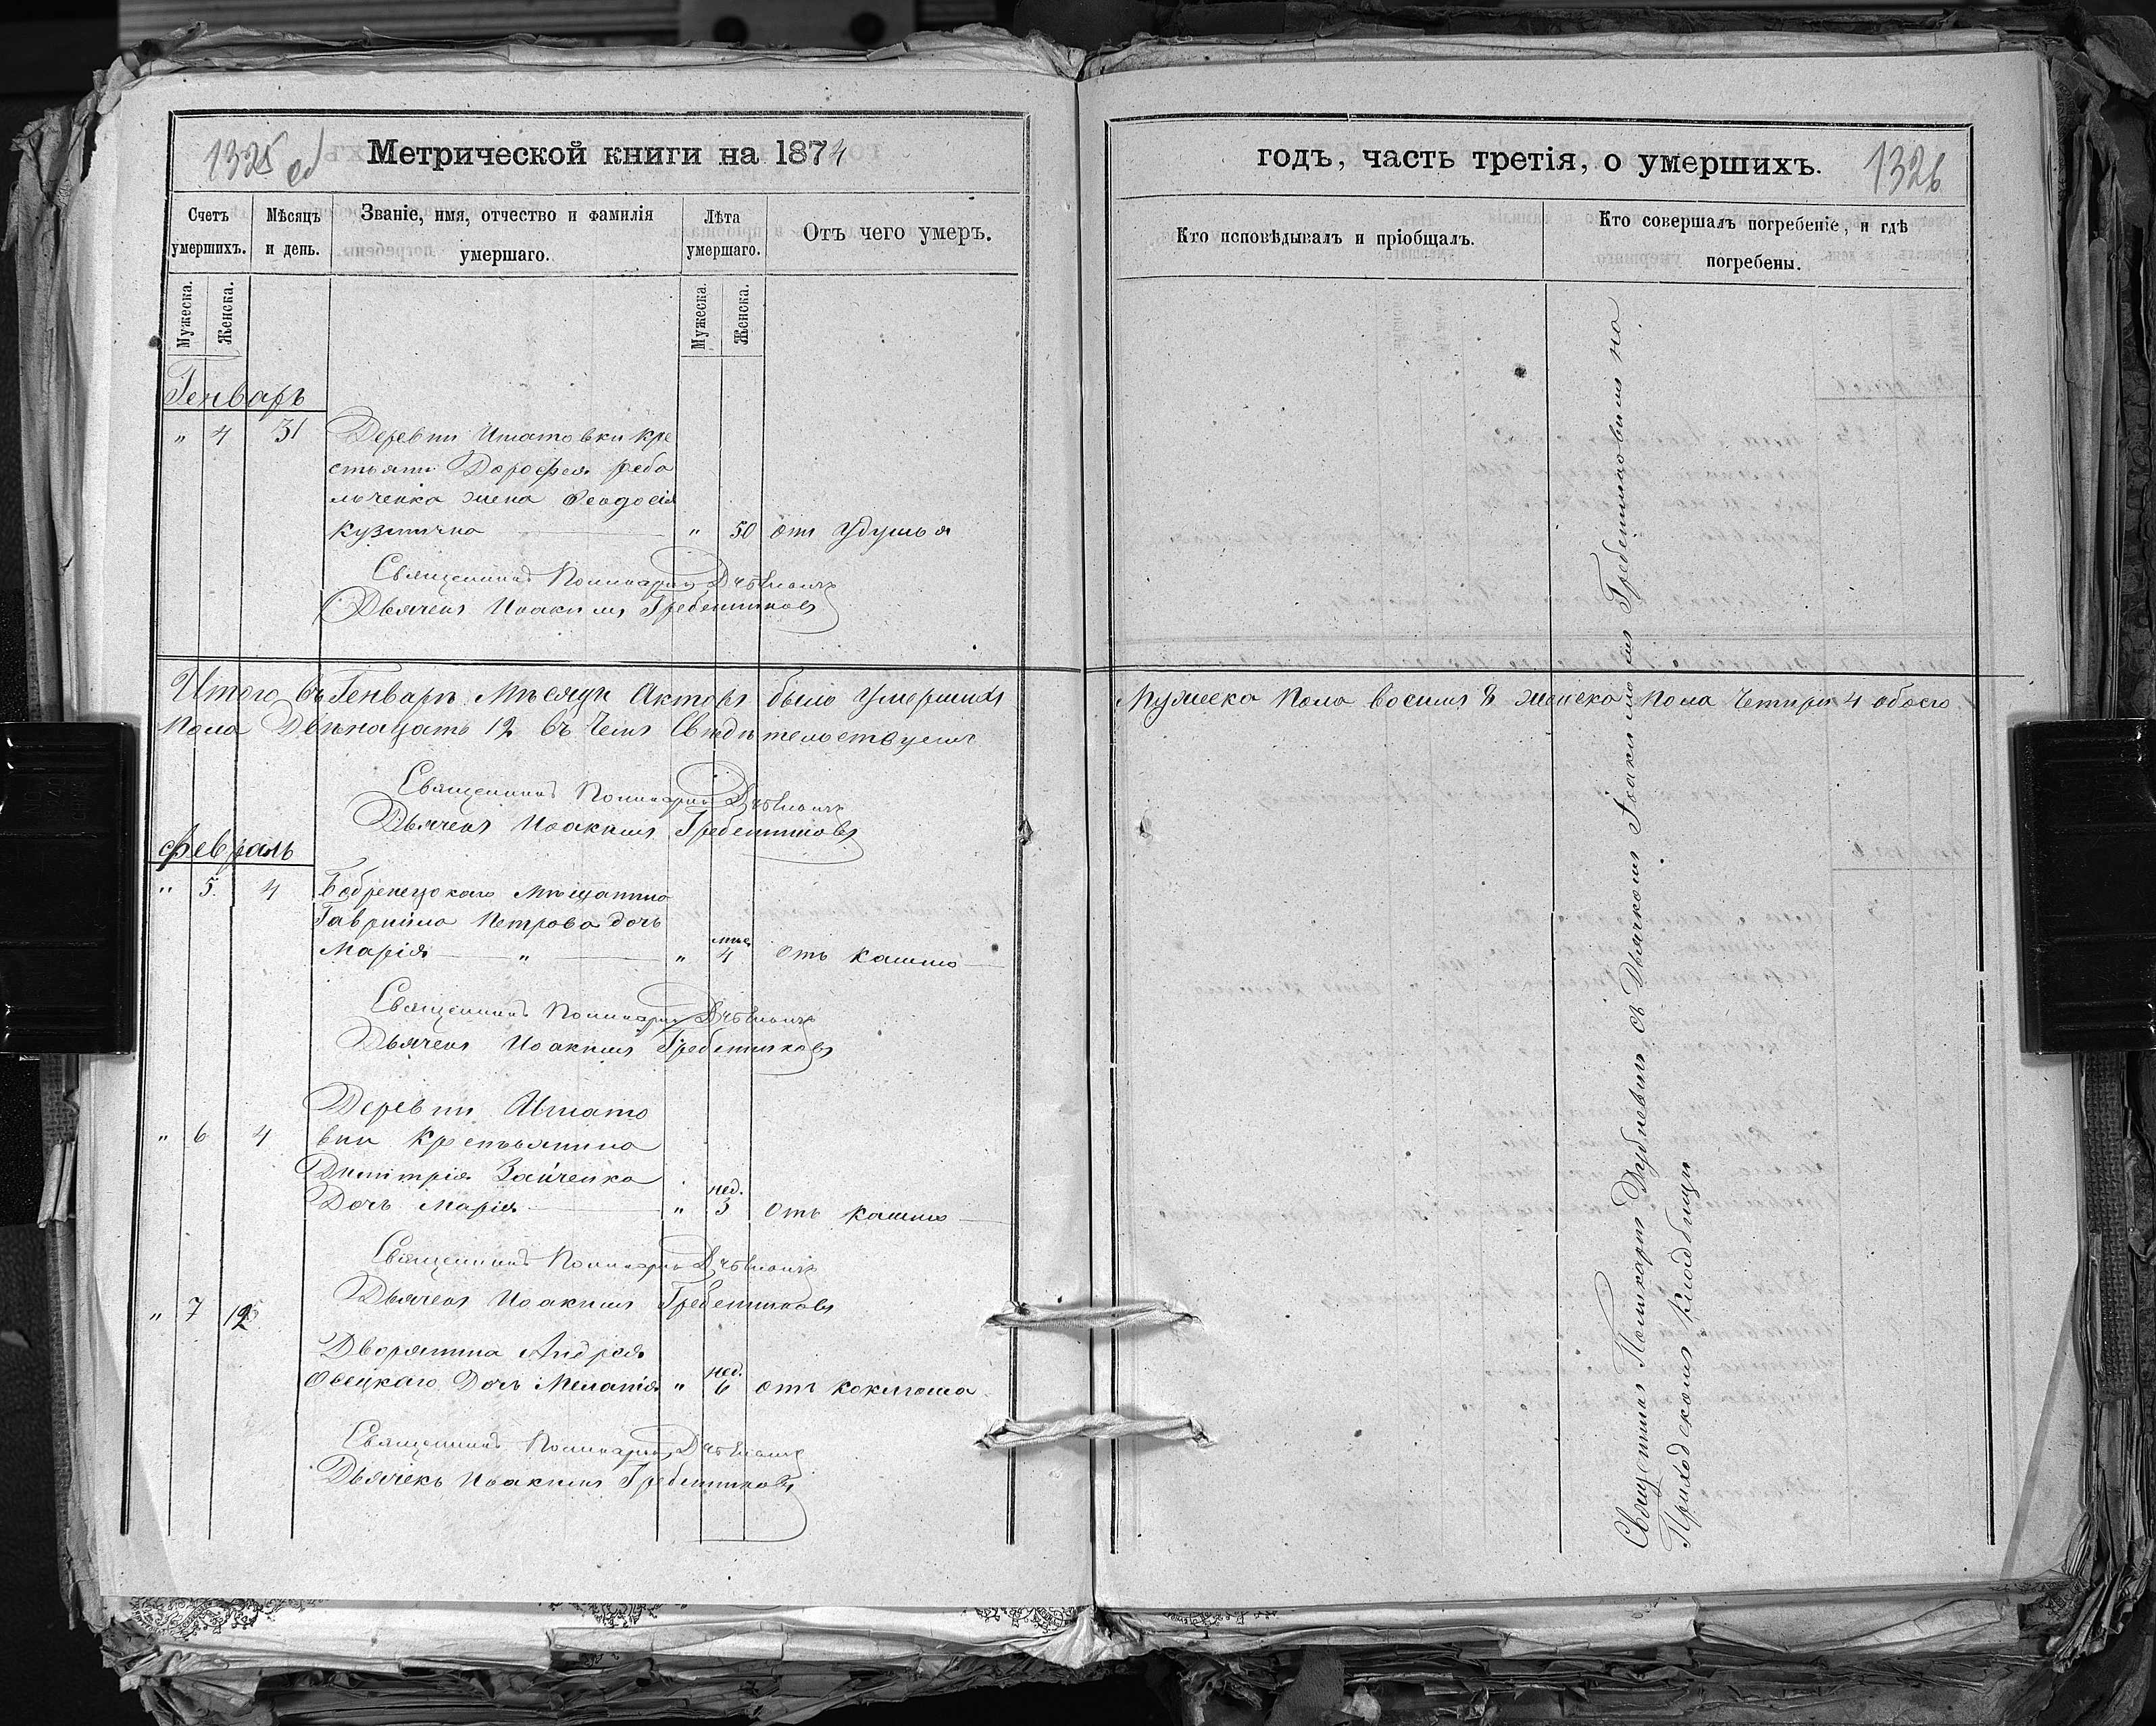 1325 об
Метрической книги на 1874
Счетъ умершихъ.
Мѣсяцъ и день.
Званіе, имя, отчество и фамилія умершаго.
Лѣта умершаго.
Отъ чего умеръ.
Мужеска.
Женска.
Мужеска.
Женска.
Генварь
" 4 31 Деревни Игнатовки кре
стьяни Дорофея
жена Феодосія
Кузмична " 50 отъ удушья
Священникъ Поликарпъ
Дьячекъ Иоакимъ Гребенниковъ
Итого въ Генварѣ Мѣсяцѣ было Умершихъ
пола Двѣнацать 12 въ чемъ Свидѣтельствуемъ
Священникъ Поликарпъ
Дьячекъ Иоакимъ Гребенниковъ
Февраль
" 5. 4 Бобренецкаго Мѣщанина
Гавріила Петрова дочь
Марія " " мѣс. 4 отъ кашлю
Священникъ Поликарпъ
Дьячекъ Иоакимъ Гребенниковъ
Деревни
" 6 4 вки Крестьянина
Димитрія Зайченка
Дочь Марія " нед. 3 отъ кашлю
Священникъ Поликарпъ
Дьячекъ Иоакимъ Гребенниковъ
" 7
Дворянина Андрея
Дочь Меланія " нед. 6 отъ коклюша
Священникъ Поликарпъ
Дьячекъ Иоакимъ Гребенниковъ
годъ, часть третія, о умершихъ.
1326
Кто исповѣдывалъ и пріобщалъ.
Кто совершалъ погребеніе, и гдѣ погребены.
Мужеска пола восимъ 8 женска пола четыри 4 обоего
Священникъ Поликарпъ съ Дьячкомъ Іоакимомъ Гребенниковимъ на
Приходскомъ Кладбищи